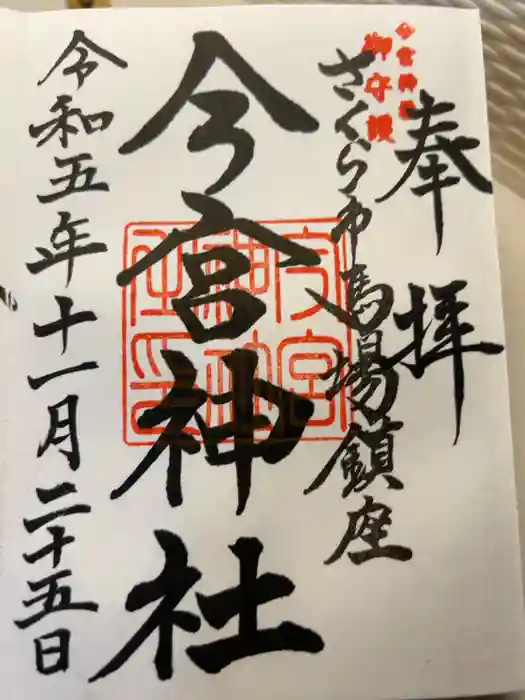 奉拝
今宮神社
御守護
さくら市馬場鎮座
今宮神社
今宮神社之印
令和五年十一月二十五日